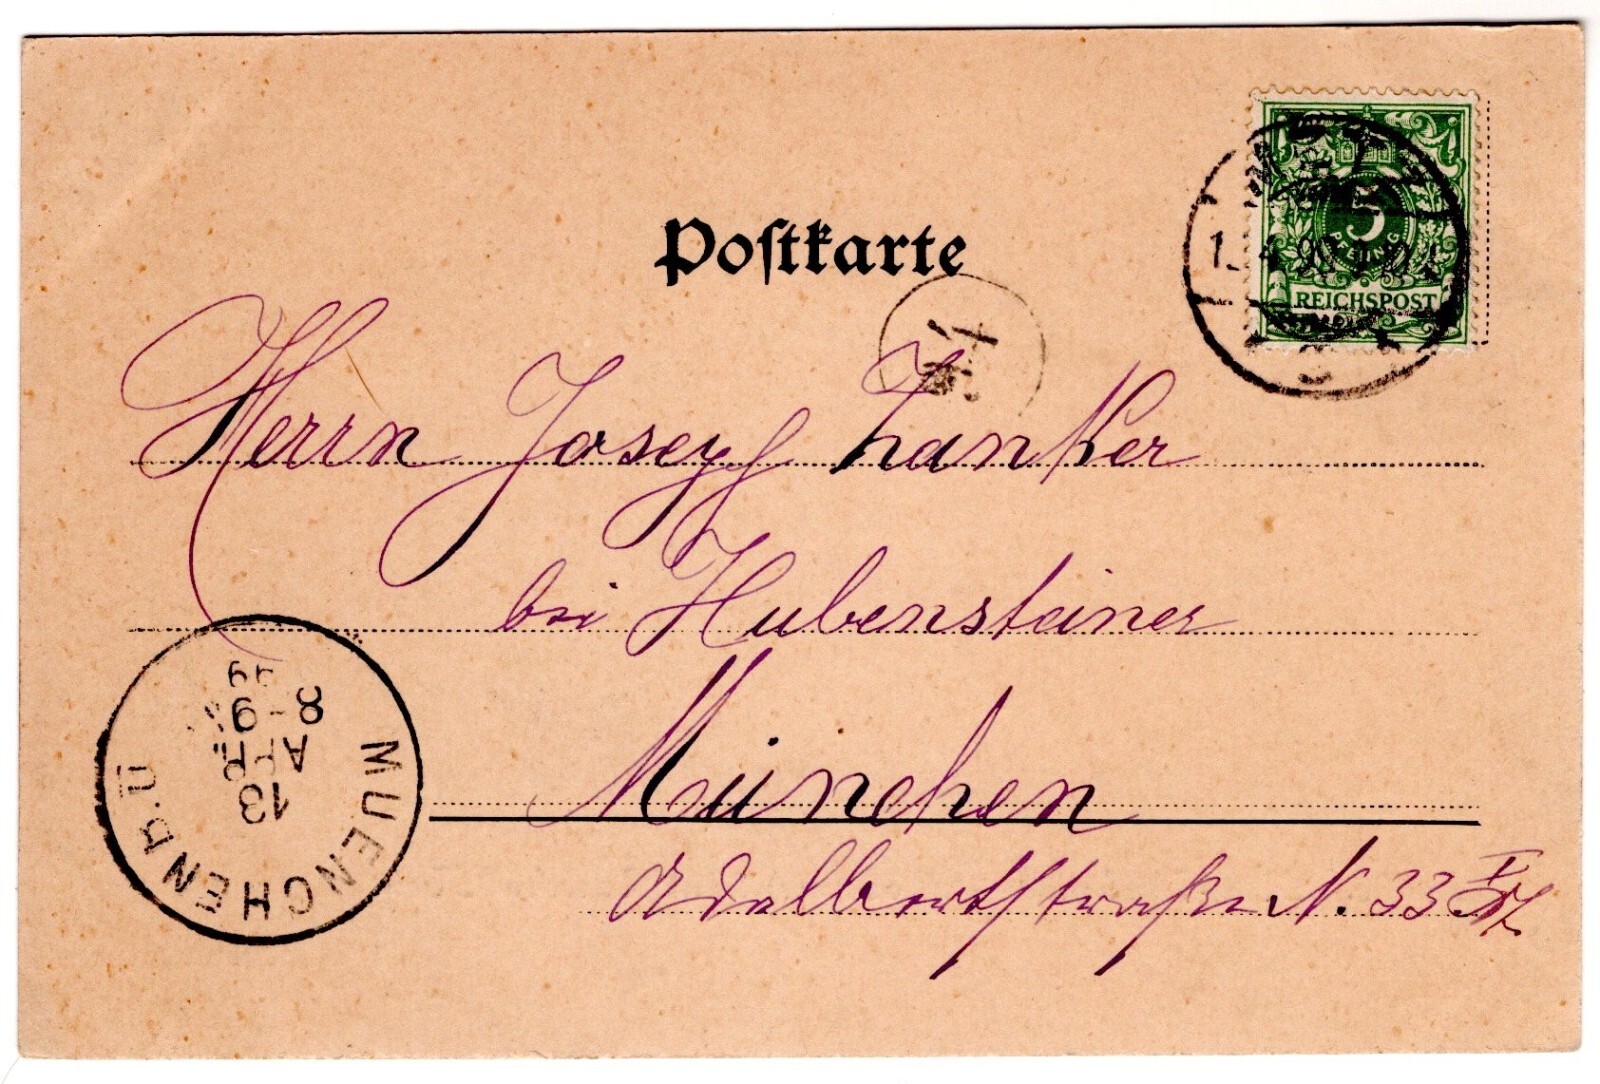 Postkarte
5
REICHSPOST
Herrn Joseph Zanker
bei Hubensteiner
München
Adalbertstraße N. 33
MUENCHEN B.U
13
APR.
8-9
99